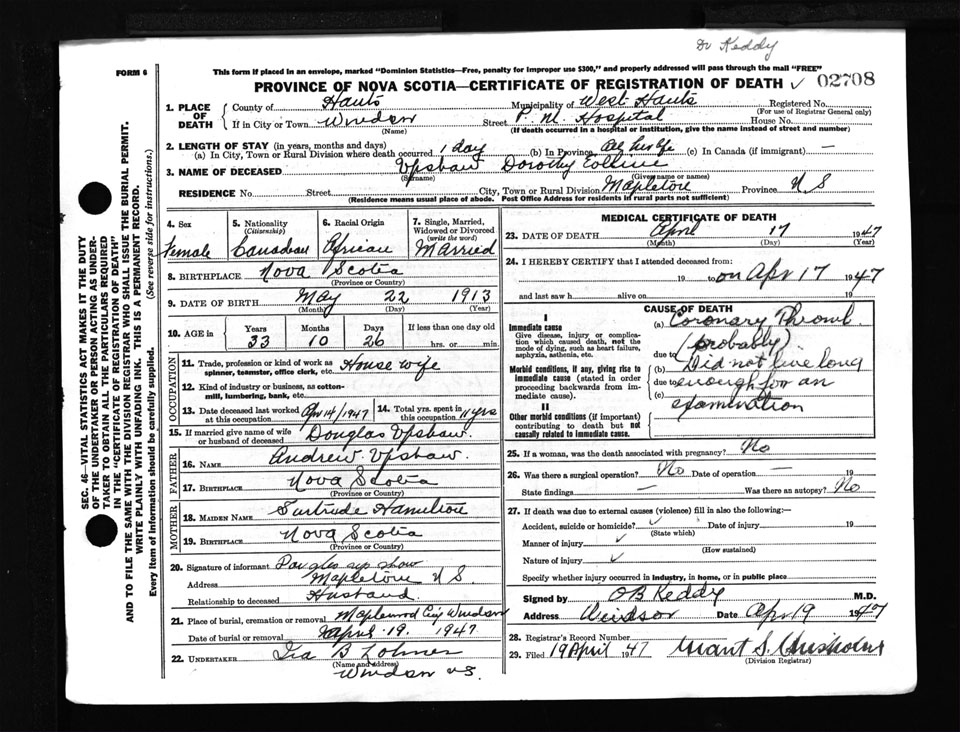 Dr Keddy
FORM 6
This form if placed in an envelope, marked "Dominion Statistics—Free, penalty for improper use $300," and properly addressed will pass through the mail "FREE"
PROVINCE OF NOVA SCOTIA—CERTIFICATE OF REGISTRATION OF DEATH ✓ 02708
1. PLACE OF DEATH { County of Hants Municipality of West Hants Registered No.
(For use of Registrar General only)
If in City or Town Windsor Street P. M. Hospital House No.
(Name) (If death occurred in a hospital or institution, give the name instead of street and number)
2. LENGTH OF STAY (in years, months and days)
(a) In City, Town or Rural Division where death occurred 1 day (b) In Province All her life (c) In Canada (if immigrant) —
3. NAME OF DECEASED Upshaw Dorothy
(Surname) (Given name or names)
RESIDENCE No. Street City, Town or Rural Division Mapletore Province N S
(Residence means usual place of abode. Post Office Address for residents in rural parts not sufficient)
4. Sex Female
5. Nationality (Citizenship) Canadian
6. Racial Origin African
7. Single, Married, Widowed or Divorced (write the word) Married
8. BIRTHPLACE Nova Scotia
(Province or Country)
9. DATE OF BIRTH May 22 1913
(Month) (Day) (Year)
10. AGE in Years Months Days If less than one day old
33 10 26 hrs. or min.
OCCUPATION
11. Trade, profession or kind of work as spinner, teamster, office clerk, etc. House wife
12. Kind of industry or business, as cotton-mill, lumbering, bank, etc.
13. Date deceased last worked at this occupation Apr 14/1947 14. Total yrs. spent in this occupation 11 yrs
15. If married give name of wife or husband of deceased Douglas Upshaw.
FATHER
16. NAME Andrew Upshaw.
17. BIRTHPLACE Nova Scotia
(Province or Country)
MOTHER
18. MAIDEN NAME Gertrude Hamilton
19. BIRTHPLACE Nova Scotia
(Province or Country)
20. Signature of informant Douglas upshow
Address Mapletore N S.
Relationship to deceased Husband
21. Place of burial, cremation or removal Maplewood Cem Windsor
Date of burial or removal April. 19. 1947
22. UNDERTAKER Ira B
(Name and address)
Windsor N S.
MEDICAL CERTIFICATE OF DEATH
23. DATE OF DEATH April 17 1947
(Month) (Day) (Year)
24. I HEREBY CERTIFY that I attended deceased from:
19 to on Apr 17 1947
and last saw h alive on 19
CAUSE OF DEATH
I
Immediate cause
Give disease, injury or complication which caused death, not the mode of dying, such as heart failure, asphyxia, asthenia, etc.
Morbid conditions, if any, giving rise to immediate cause (stated in order proceeding backwards from immediate cause).
II
Other morbid conditions (if important) contributing to death but not causally related to immediate cause.
(a) Coronary Thromb.
(probably).
due to
(b) Did not live long
due to enough for an
(c) examination
25. If a woman, was the death associated with pregnancy? No
26. Was there a surgical operation? No Date of operation — 19
State findings — Was there an autopsy? No
27. If death was due to external causes (violence) fill in also the following:—
Accident, suicide or homicide? ✓ Date of injury 19
(State which)
Manner of injury ✓
(How sustained)
Nature of injury ✓
Specify whether injury occurred in industry, in home, or in public place
Signed by O B Keddy M.D.
Address Windsor Date Apr 19 1947
28. Registrar's Record Number
29. Filed 19 April 1947 Grant S. Chisholm
(Division Registrar)
SEC. 46—VITAL STATISTICS ACT MAKES IT THE DUTY
OF THE UNDERTAKER OR PERSON ACTING AS UNDERTAKER TO OBTAIN ALL THE PARTICULARS REQUIRED
IN THE "CERTIFICATE OF REGISTRATION OF DEATH"
AND TO FILE THE SAME WITH THE DIVISION REGISTRAR WHO SHALL ISSUE THE BURIAL PERMIT.
WRITE PLAINLY WITH UNFADING INK. THIS IS A PERMANENT RECORD.
Every item of information should be carefully supplied. (See reverse side for instructions.)